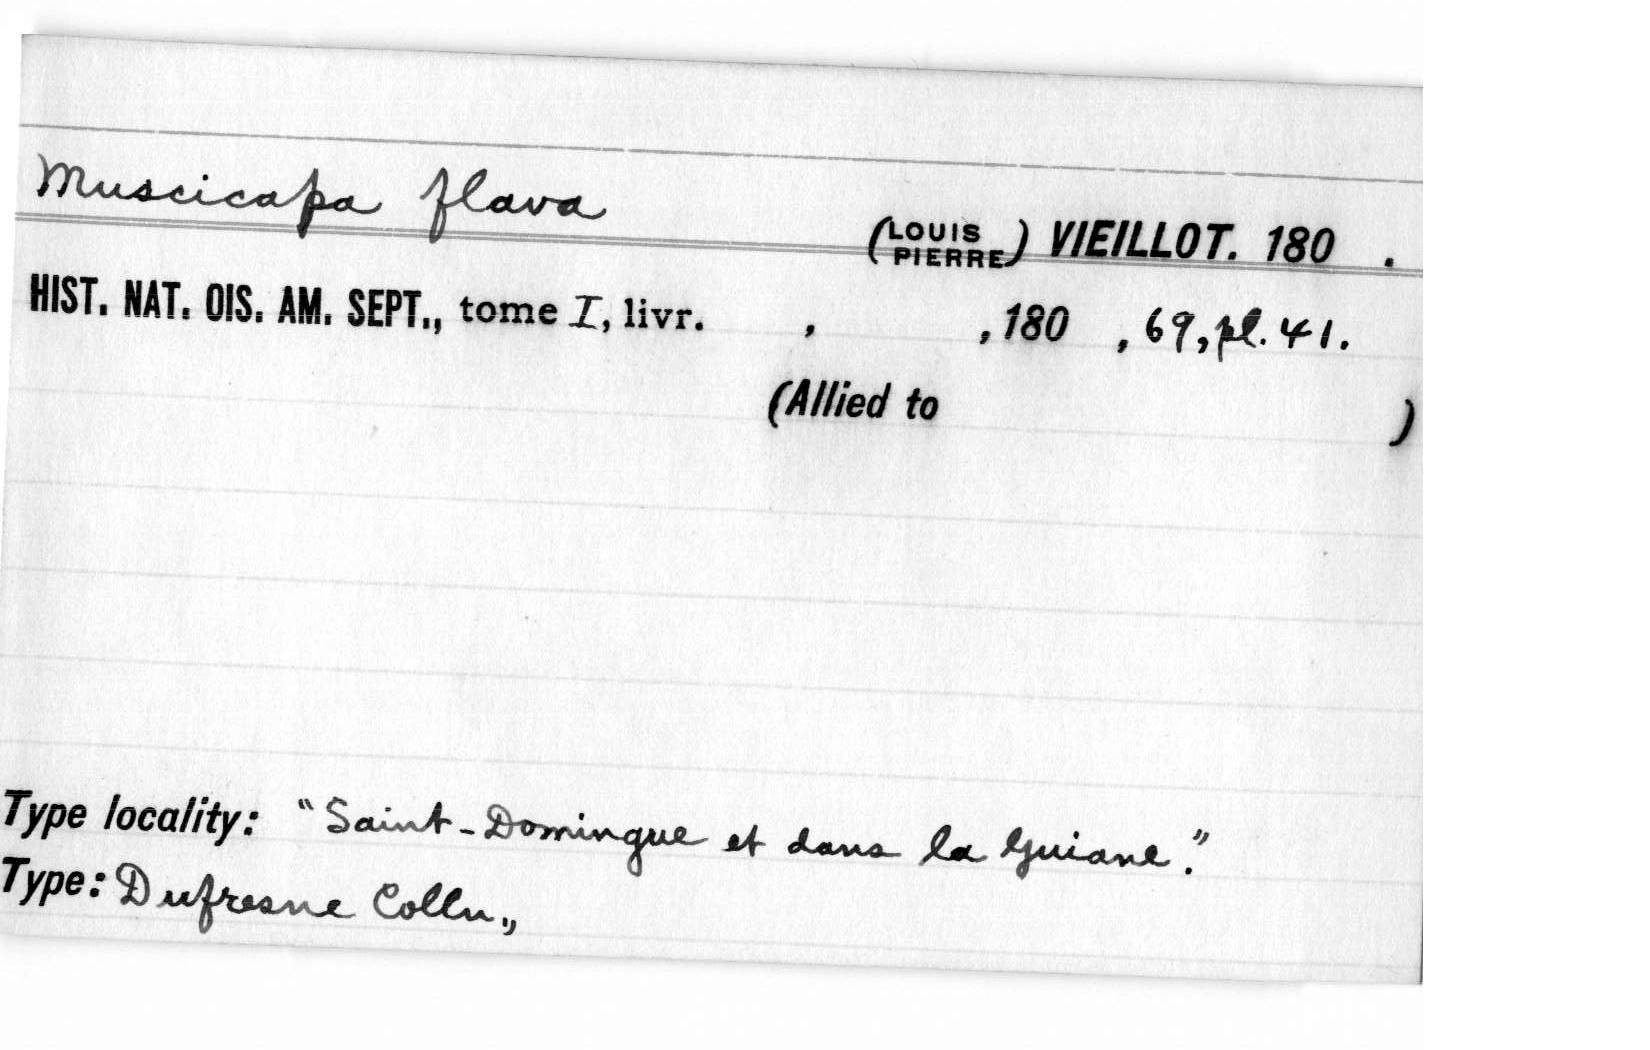 Muscicapa flava
(LOUIS PIERRE) VIEILLOT. 180 .
HIST. NAT. OIS. AM. SEPT., tome I, livr. , , 180 , 69, pl. 41.
(Allied to )
Type locality: "Saint-Domingue et dans la Guiane."
Type: Dufresne Colln.,